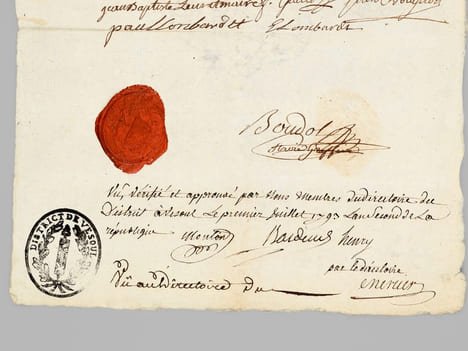 paul Lombardet E Lombardet
Boudot
Vu, vérifié et approuvé par Nous Membres du directoire du
District de Vesoul Le premier Juillet 1793 Lan Second de La
république Monton Bardenet henry
par le directoire
Vu au Directoire du
mercier
DISTRICT DE VESOUL